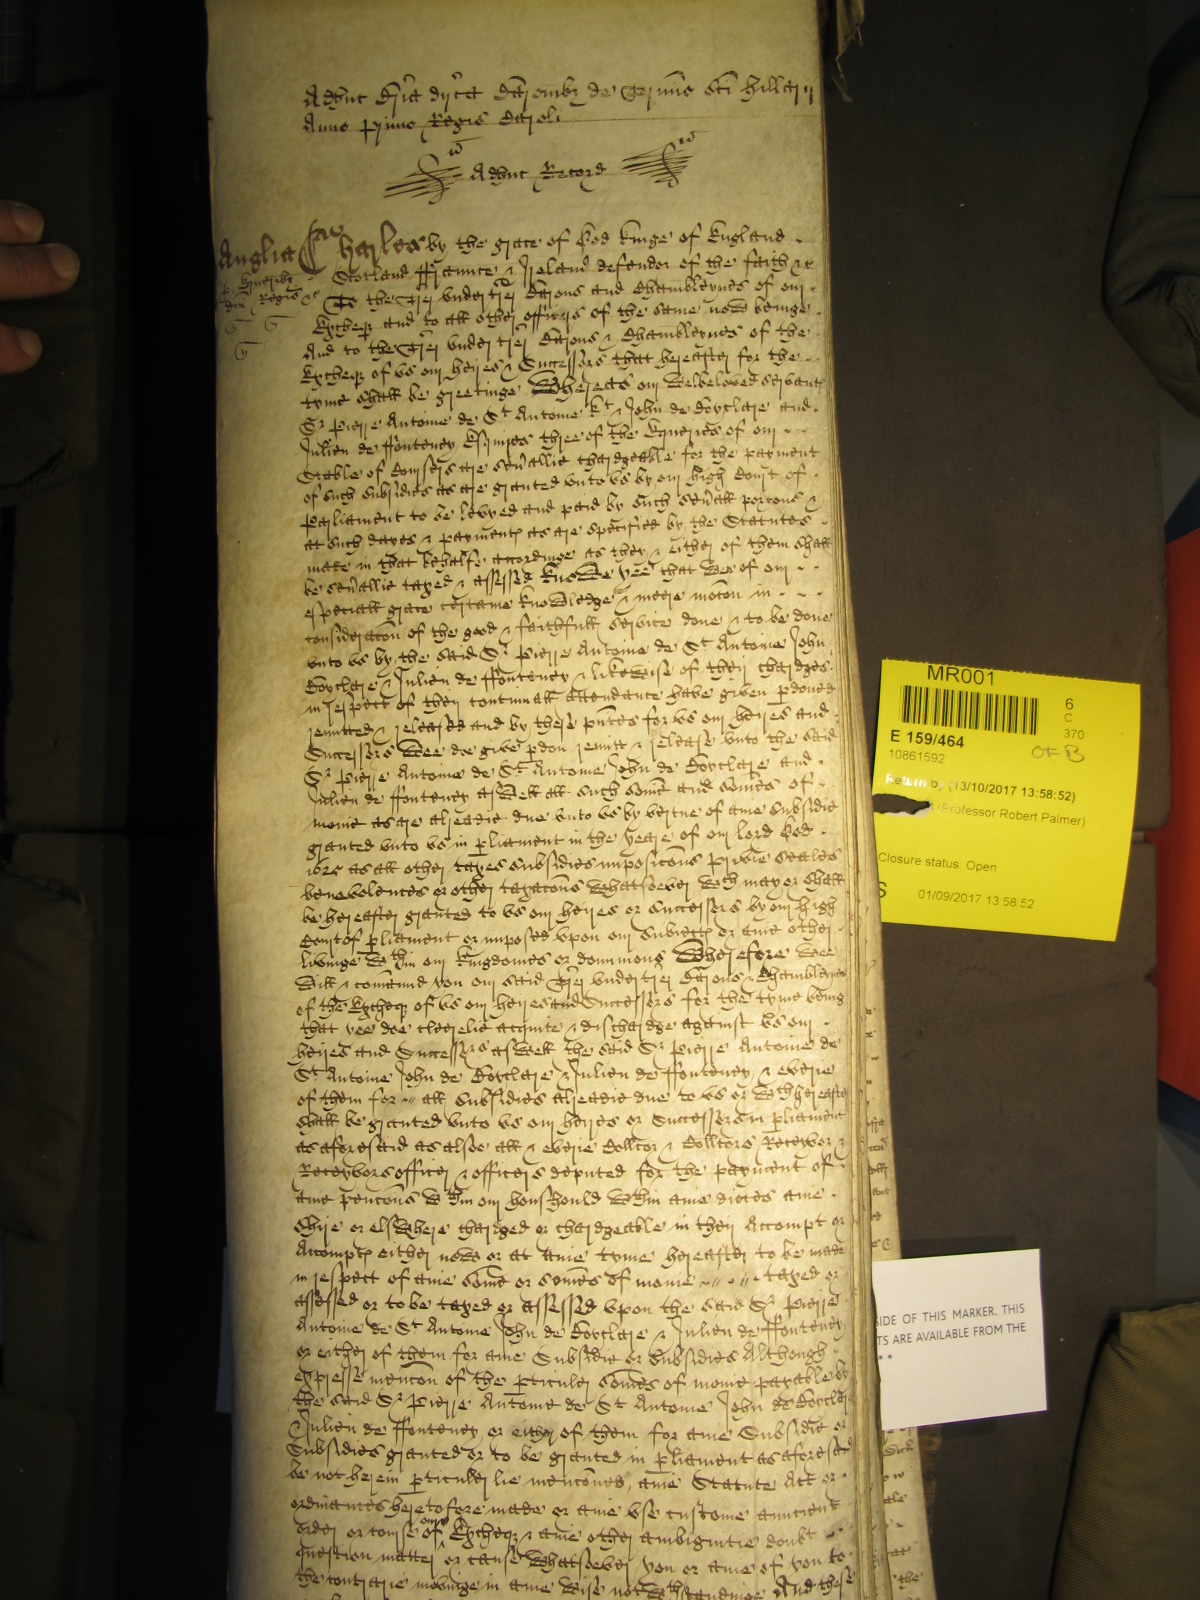 Adhuc Co͠ia dict Decembr de Termino Sci Hillarij
Anno primo Regis Caroli
Adhuc Record
Anglia
Charles by the grace of God Kinge of England
Scotland ffraunce & Ireland defender of the faith &c
To the Trer undertrer Barons and Chamberlynes of our
Excheqr and to all other officers of the same now beinge
And to the Trer undertrer Barons & Chamberlynes of the
Excheqr of us our heires & Successors that hereafter for the
tyme shall be greetinge Whereas our welbeloved servants
Sr Pierre Antoine de St Antoine Kt & John de Borclare and
Julien de ffonteney Esquires three of the Equeries of our
Stable of Coursers are sevallie chardgeable for the payment
of such subsidies as are graunted unto us by our high Court of
Parliament to be levyed and paid by such sevall porcons &
at such dayes & payments as are specified by the Statutes
made in that behalfe accordinge as they & either of them shall
be sevallie taxed & assessed Knowe yee that wee of our
especiall grace certaine knowledge & meere mocon in
consideracon of the good & faithfull service done & to be done
unto us by the said Sr Pierre Antoine de St Antoine John
Borclare & Julien de ffonteney & likewise of their chardges
in respect of their continuall attendance have given pdoned
remitted & released and by these pntes for us our heires and
Successors Wee doe give pdon remitt & release unto the said
Sr Pierre Antoine de St Antoine John de Borclare and
Julien de ffonteney aswell all such some and somes of
monie as are alreadie due unto us by vertue of anie Subsidie
graunted unto us in pliament in the yeare of our lord God
1625 as all other taxes subsidies imposicons privie seales
benevolences or other taxacons whatsoever wch may or shall
be hereafter graunted to us our heires or successors by our high
Court of pliament or imposed upon our subiects or anie other
livinge within our Kingdomes or dominions Wherefore wee
will & comaund you our said Trer undertrer Barons & Chamberlynes
of the Excheqr of us our heires and Successors for the tyme being
that yee doe cleerelie acquite & dischardge against us our
heires and Successors aswell the said Sr Pierre Antoine de
St Antoine John de Borclare & Julien de ffonteney & everie
of them for all subsidies alreadie due to us or wch hereafter
shall be graunted unto us our heires or Successors in pliament
as aforesaid as alsoe all & everie Collcor & Collcors Receyvor &
Receyvors officer & officers deputed for the payment of
anie pencons within our houshould within anie cities anie
Shire or elswhere charged or chardgeable in their Accompt or
Accompts either now or at anie tyme hereafter to be made
in respect of anie some or somes of monie taxed or
assessed or to be taxed or assessed upon the said Sr Pierre
Antoine de St Antoine John de Borclare & Julien de ffonteney
or either of them for anie Subsidie or Subsidies Although
expresse mencon of the pticuler somes of monie payable by
the said Sr Pierre Antoine de St Antoine John de Borclare
& Julien de ffonteney or either of them for anie Subsidie or
Subsidies graunted or to be graunted in pliament as aforesaid
be not herein pticulerlie menconed anie Statute Act or
ordinances heretofore made or anie use custome auncient
order or course of our Excheqr & anie other ambiguitie doubt
question matter or cause whatsoever you or anie of you to
the contrarie movinge in anie wise notwithstandinge And these
MR001
6
C
370
E 159/464
OF B
10861592
Return by (13/10/2017 13:58:52)
(Professor Robert Palmer)
Closure status: Open
S
01/09/2017 13:58:52
SIDE OF THIS MARKER. THIS
TS ARE AVAILABLE FROM THE
* *